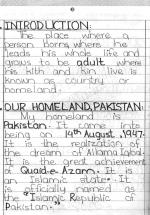 INTRODUCTION:
The place where a
person borns, where he
leads his whole life and
grows to be adult where
his kith and kin live is
known as country or
homeland.
OUR HOMELAND, PAKISTAN:
My homeland is
Pakistan. It came into
being on 14th August, 1947.
It is the realization of
the dream of Allama Iqbal.
It is the great achievement
of Quaid-e-Azam. It is
an Islamic state. It
is officially named as
the "Islamic Republic of
Pakistan."